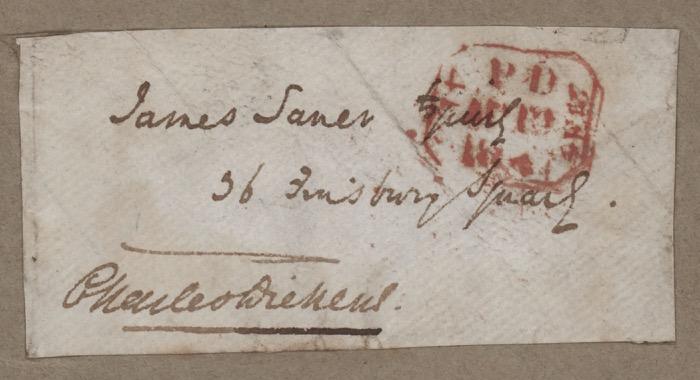 James Saner Esquire
36 Finsbury Square.
Charles Dickens.
PD
19
184